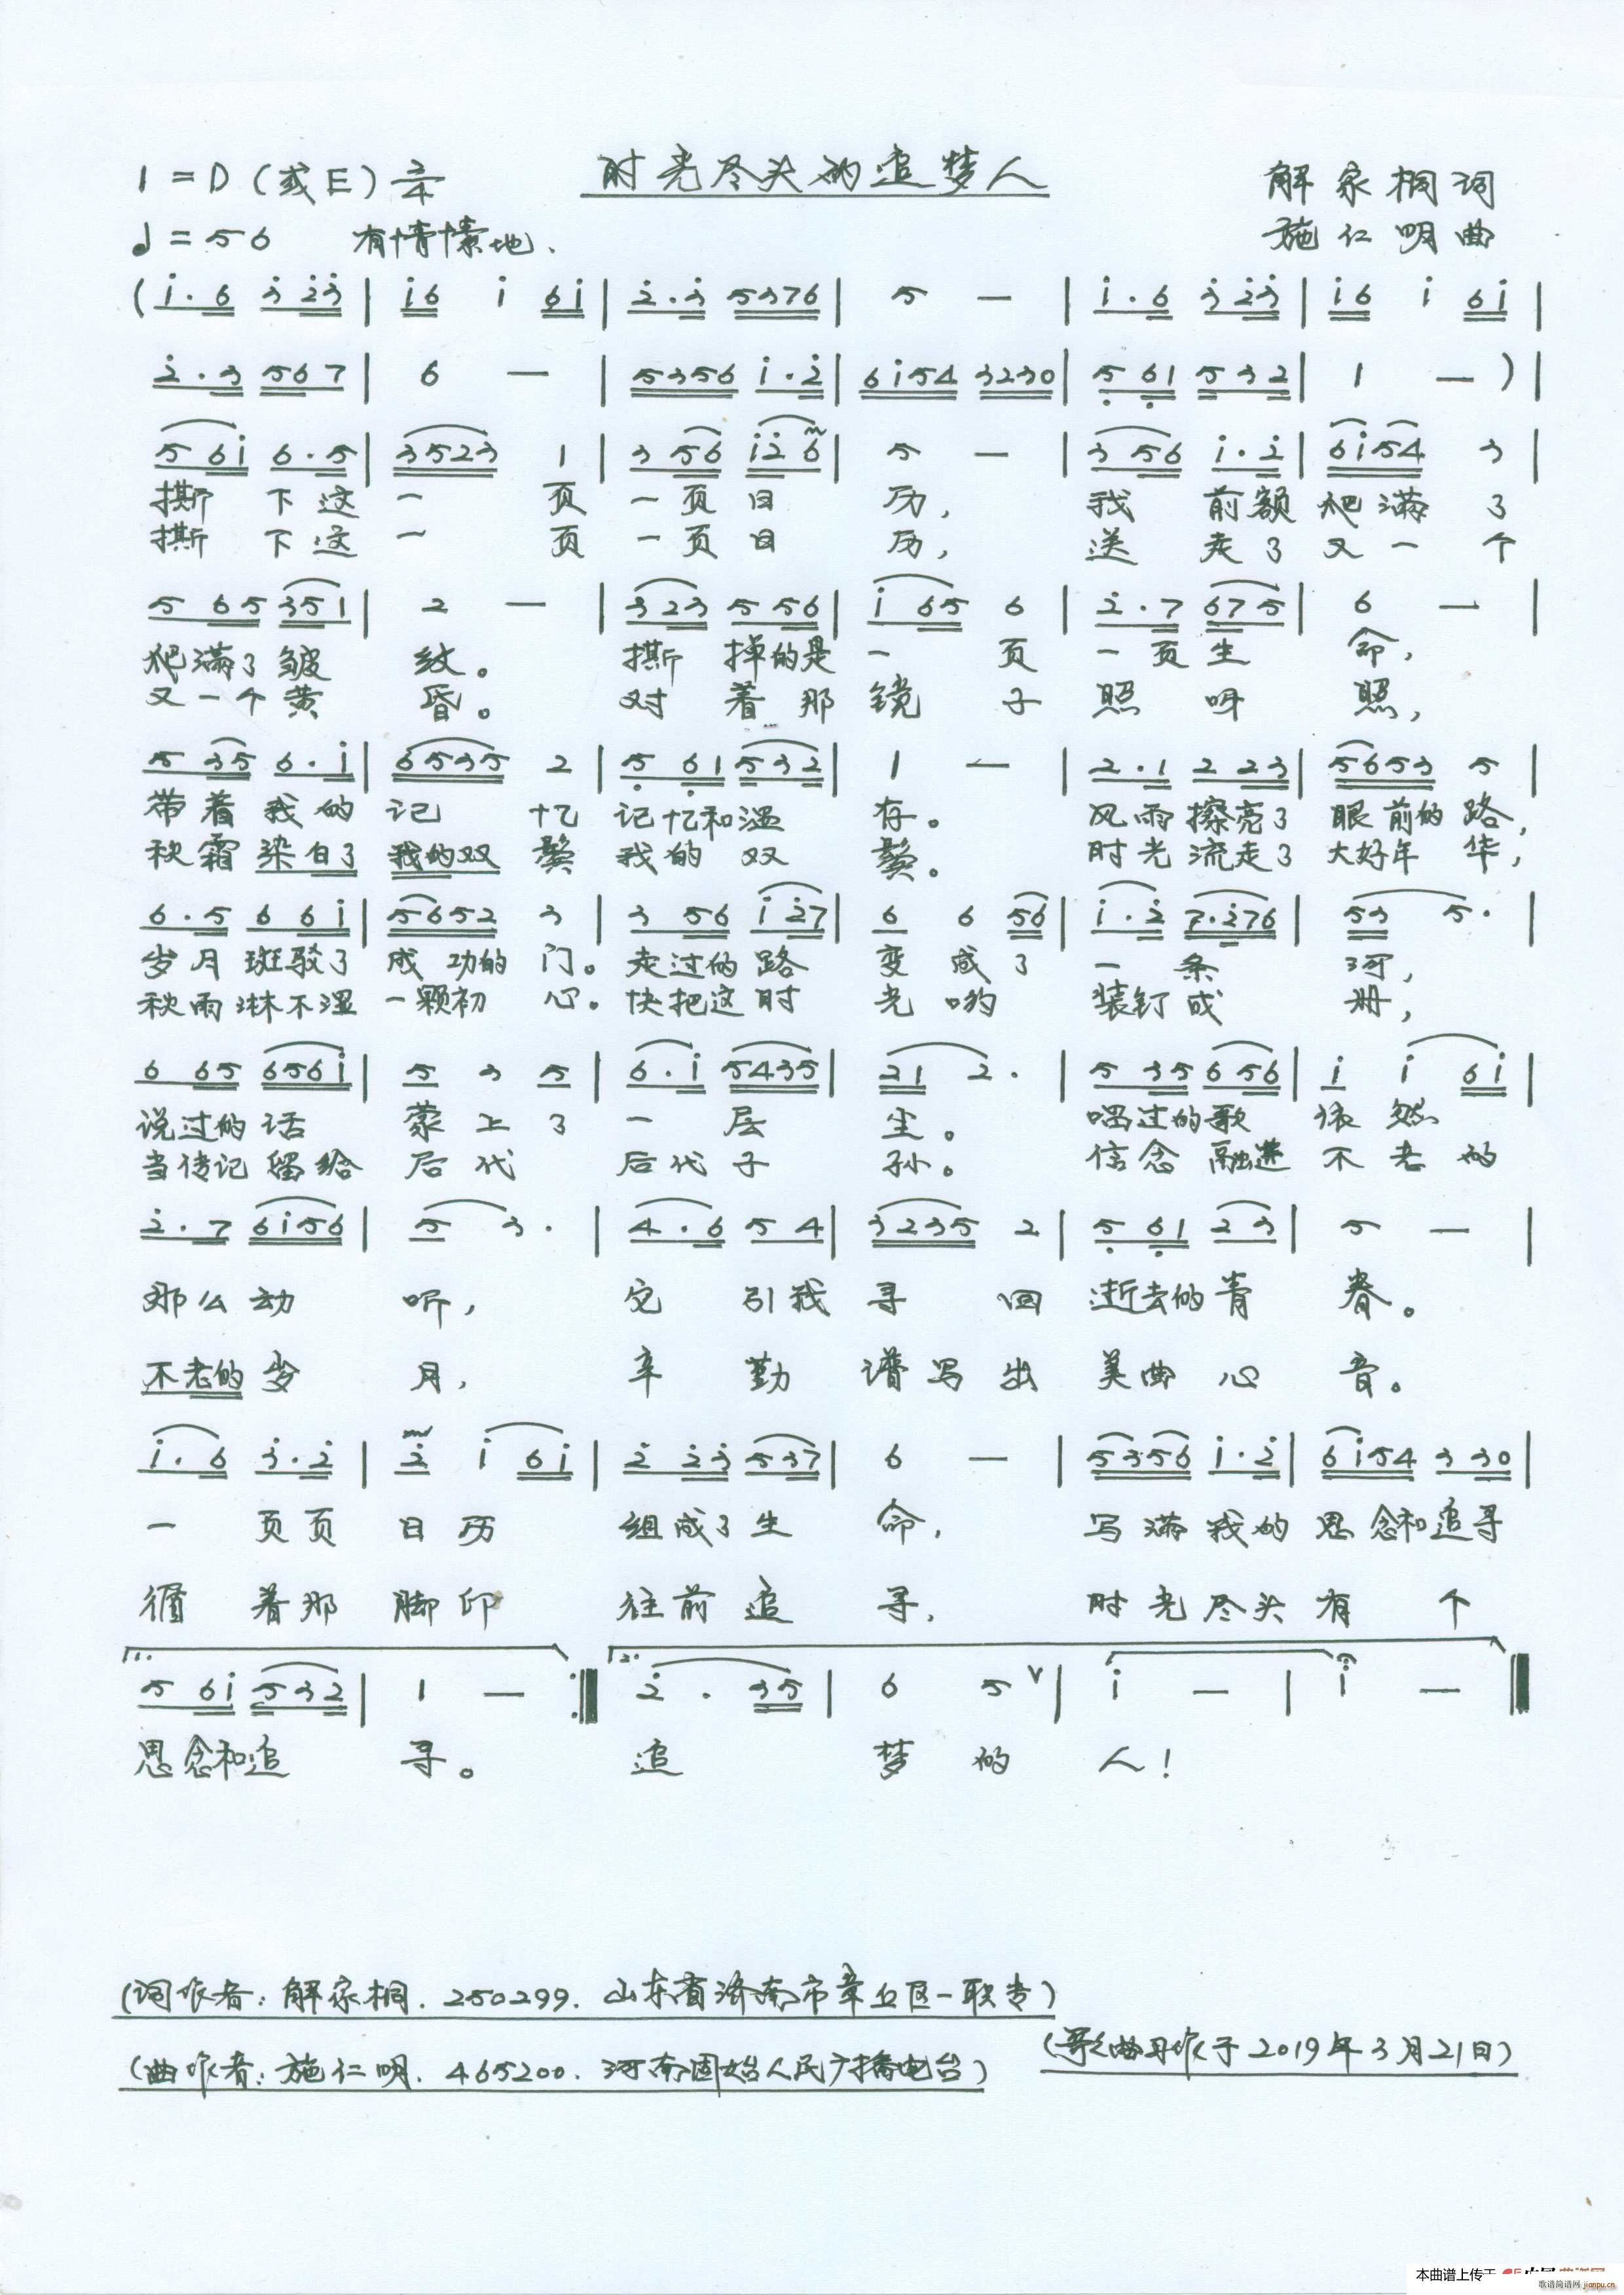 时光尽头的追梦人
1=D（或E）2/4
解家桐词
♩=56 有情愫地、
施仁明曲
(i·6 3 23 | i6 i 6i | 2·3 5376 | 5 — | i·6 3 23 | i6 i 6i |
2·3 567 | 6 — | 5356 i·2 | 6i54 3230 | 5 61 532 | 1 — ) |
5 6i 6·5 | 3523 1 | 3 56 i26 | 5 — | 3 56 i·2 | 6i54 3 |
撕下这一页一页日历，我前额爬满了
撕下这一页一页日历，送走了又一个
5 65 351 | 2 — | 323 556 | i 65 6 | 2·7 675 | 6 — |
爬满了皱纹。撕掉的是一页一页生命，
又一个黄昏。对着那镜子照呀照，
5 35 6·i | 6535 2 | 5 61 532 | 1 — | 2·1 2 23 | 5653 5 |
带着我的记忆记忆和温存。风雨擦亮了眼前的路，
秋霜染白了我的双鬓我的双鬓。时光流走了大好年华，
6·5 6 6i | 5652 3 | 3 56 i 27 | 6 6 56 | i·2 7·276 | 53 5· |
岁月斑驳了成功的门。走过的路变成了一条河，
秋雨淋不湿一颗初心。快把这时光哟装钉成册，
6 65 656i | 5 3 5 | 6·i 5435 | 21 2· | 5 35 6 56 | i i 6i |
说过的话蒙上了一层尘。唱过的歌依然
当传记留给后代后代子孙。信念融进不老的
2·7 6i56 | 5 3· | 4·6 5 4 | 3235 2 | 5 61 23 | 5 — |
那么动听，它引我寻回逝去的青春。
不老的岁月，辛勤谱写出美曲心音。
i·6 3·2 | 2 i 6i | 2 23 537 | 6 — | 5356 i·2 | 6i54 330 |
一页页日历组成了生命，写满我的思念和追寻
循着那脚印往前追寻，时光尽头有个
1. 2.
5 6i 532 | 1 — :‖ 2· 35 | 6 5 V | i — | i — ‖
思念和追寻。追梦的人！
(词作者：解家桐．250299．山东省济南市章丘区一职专)
(歌曲写作于2019年3月21日)
(曲作者：施仁明．465200．河南固始人民广播电台)
本曲谱上传于
歌谱简谱网 jianpu.cn